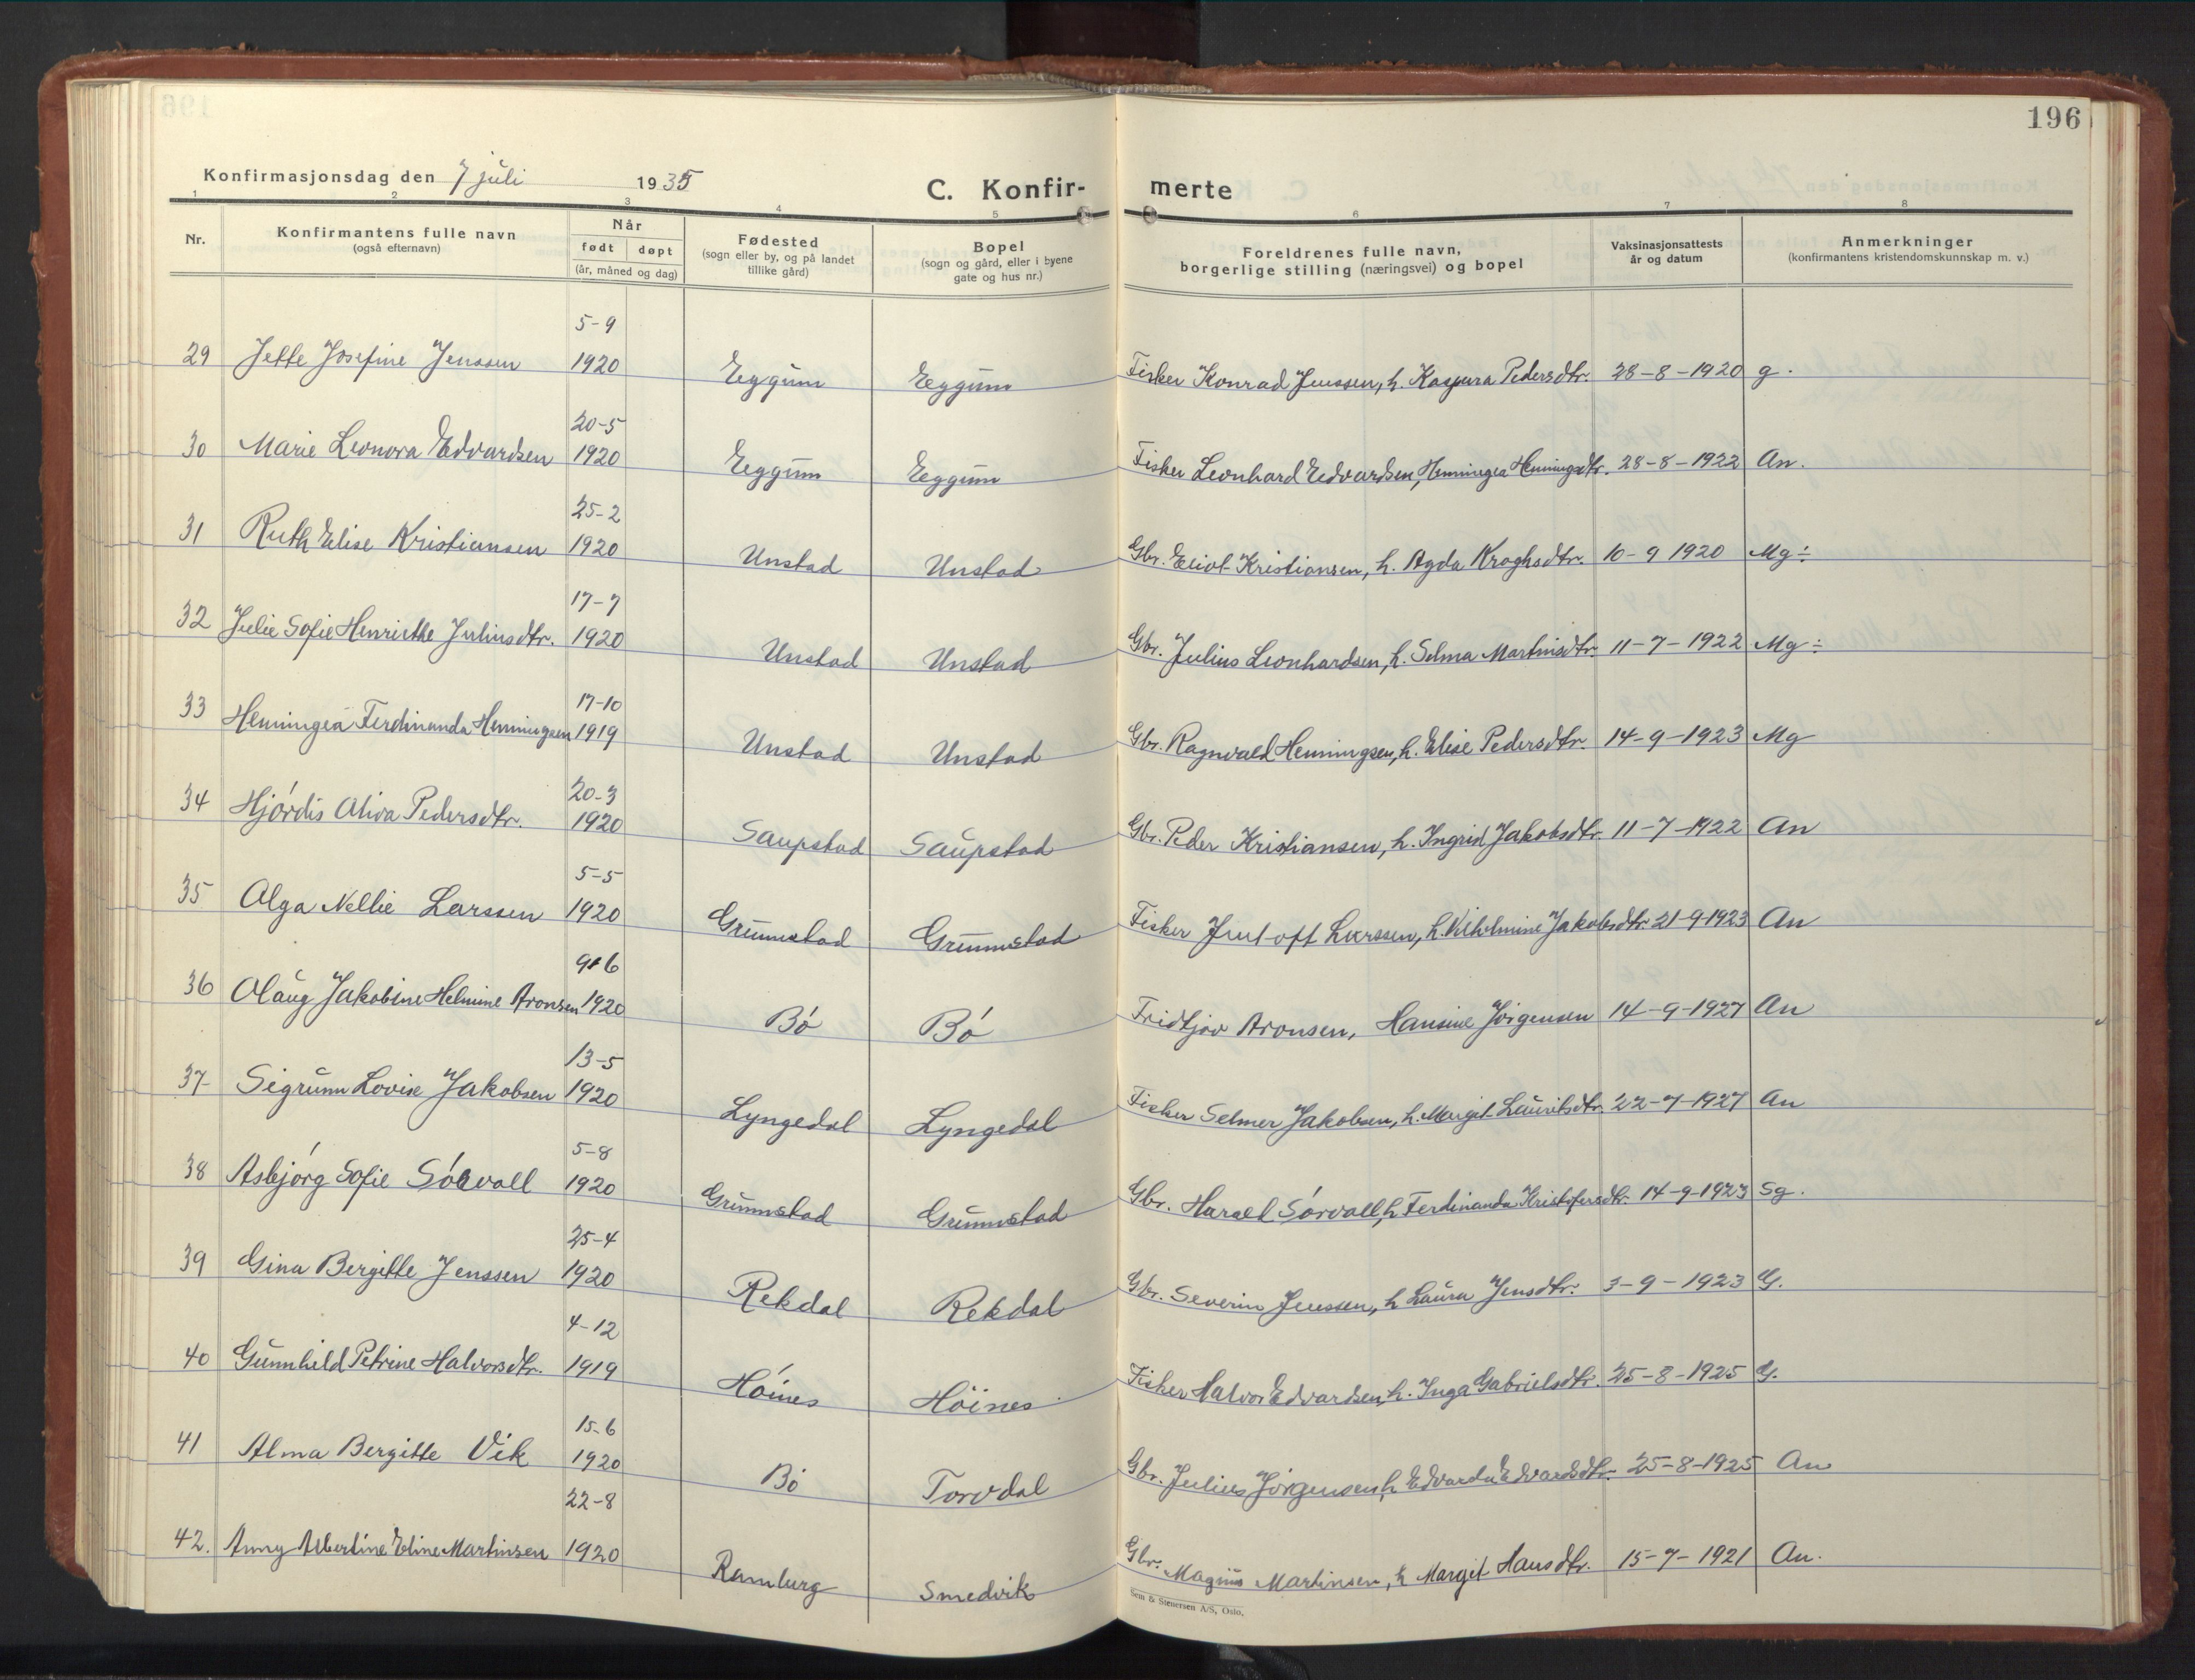 196
Konfirmasjonsdag den 7 juli 1935
C. Konfir- merte
1 2 3 4 5 6 7 8
Nr.
Konfirmantens fulle navn
(også efternavn)
Når
født døpt
(år, måned og dag)
Fødested
(sogn eller by, og på landet
tillike gård)
Bopel
(sogn og gård, eller i byene
gate og hus nr.)
Foreldrenes fulle navn,
borgerlige stilling (næringsvei) og bopel
Vaksinasjonsattests
år og datum
Anmerkninger
(konfirmantens kristendomskunnskap m. v.)
5-9
29 Jette Josefine Jenssen 1920 Eggum Eggum Fisker Konrad Jenssen, h. Kaspara Pedersdtr. 28-8-1920 g.
20-5
30 Marie Leonora Edvardsen 1920 Eggum Eggum Fisker Leonhard Edvardsen, Henningea Henningsdtr. 28-8-1922 An.
25-2
31 Ruth Elise Kristiansen 1920 Unstad Unstad Gbr. Kristiansen, h. Agda Kroghsdtr. 10-9 1920 Mg÷
17-7
32 Julie Sofie Henriette Juliusdtr. 1920 Unstad Unstad Gbr. Julius Leonhardsen, h. Selma Martinsdtr. 11-7-1922 Mg÷
17-10
33 Henningea Ferdinanda Henningsen 1919 Unstad Unstad Gbr. Ragnvald Henningsen, h. Elise Pedersdtr. 14-9-1923 Mg
20-3
34 Hjördis Aliva Pedersdtr. 1920 Saupstad Saupstad Gbr. Peder Kristiansen, h. Ingrid Jakobsdtr. 11-7-1922 An
5-5
35 Olga Nellie Larssen 1920 Grunnstad Grunnstad Fisker Larssen, h. Vilhelmine Jakobsdtr. 21-9-1923 An
9-6
36 Olaug Jakobine Helmine Aronsen 1920 Bö Bö Fridtjov Aronsen, Hansine Jörgensen 14-9-1927 An
13-5
37 Sigrunn Lovise Jakobsen 1920 Lyngedal Lyngedal Fisker Selmer Jakobsen, h. Margit Lauritsdtr. 22-7-1927 An
5-8
38 Asbjörg Sofie Sörvall 1920 Grunnstad Grunnstad Gbr. Harald Sörvall, h Ferdinanda Kristofersdtr. 14-9-1923 Sg.
25-4
39 Gina Bergitte Jenssen 1920 Rekdal Rekdal Gbr. Severin Jenssen, h Laura Jensdtr. 3-9-1923 G.
4-12
40 Gunnhild Petrine Halvorsdtr. 1919 Höines Höines Fisker Halvor Edvardsen, h. Inga Gabrielsdtr. 25-8-1925 G.
15-6
41 Alma Bergitte Vik 1920 Bö Torvdal Gbr. Julius Jörgensen, h Edvarda Edvardsdtr. 25-8-1925 An
22-8
42. Anny Albertine Eline Martinsen 1920 Ramberg Smedvik Gbr. Magnus Martinsen, h Margit Hansdtr. 15-7-1921 An.
Sem & Stenersen A/S, Oslo.